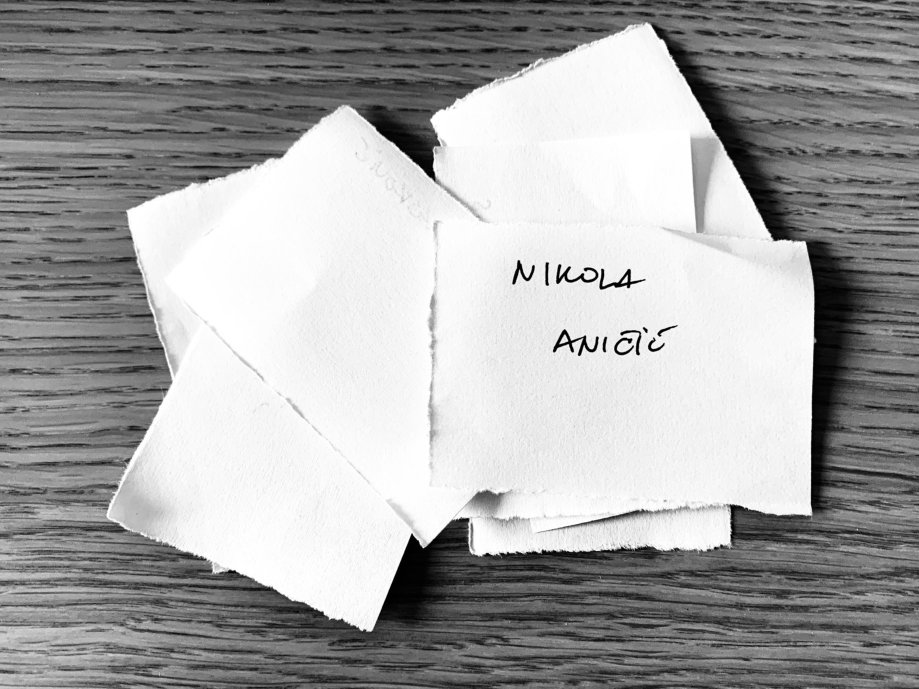 NIKOLA
ANIČIĆ